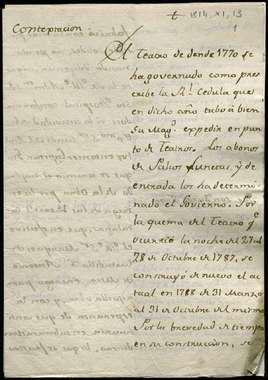 t 1814, XI, 13
1
Contestacion
El Teatro de desde 1770 se
ha governado como pres-
cribe la Rl. Cedula que
en dicho año tubo â bien
Su Magd. expedir en pun-
to de Teatros. Los abonos
de Palcos Lunetas, y de
entrada los ha determi-
nado el Govierno. Por
la quema del Teatro qe.
ocurriò la noche del 27 al
28 de Octubre de 1787, se
construyó de nuevo el ac-
tual en 1788 de 31 Marzo
al 31 de Octubre del mismo
Por la brevedad de tiempo
en su construccion, se